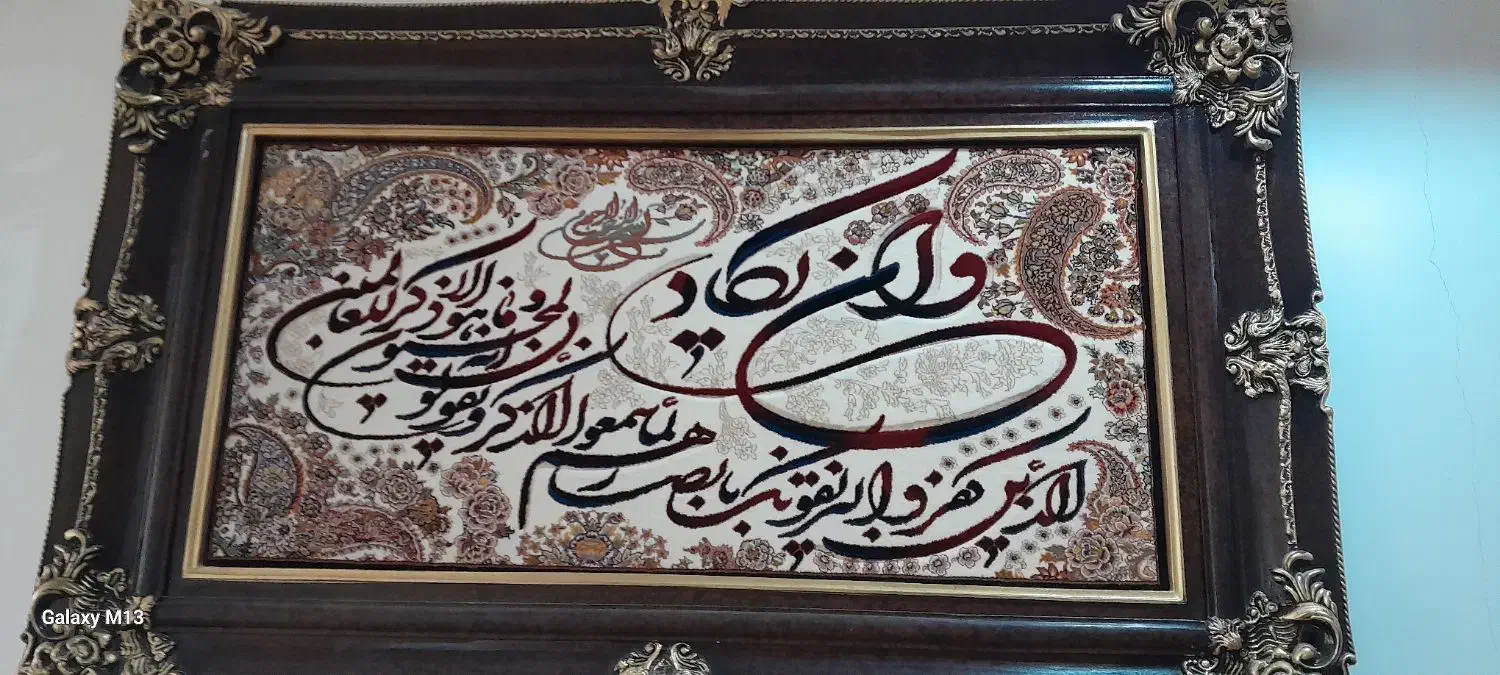 بسم الله الرحمن الرحیم
وان یکاد
الذین کفروا لیزلقونک بابصارهم
لما سمعوا الذکر و یقولون
انه لمجنون
و ما هو الا ذکر للعالمین
Galaxy M13